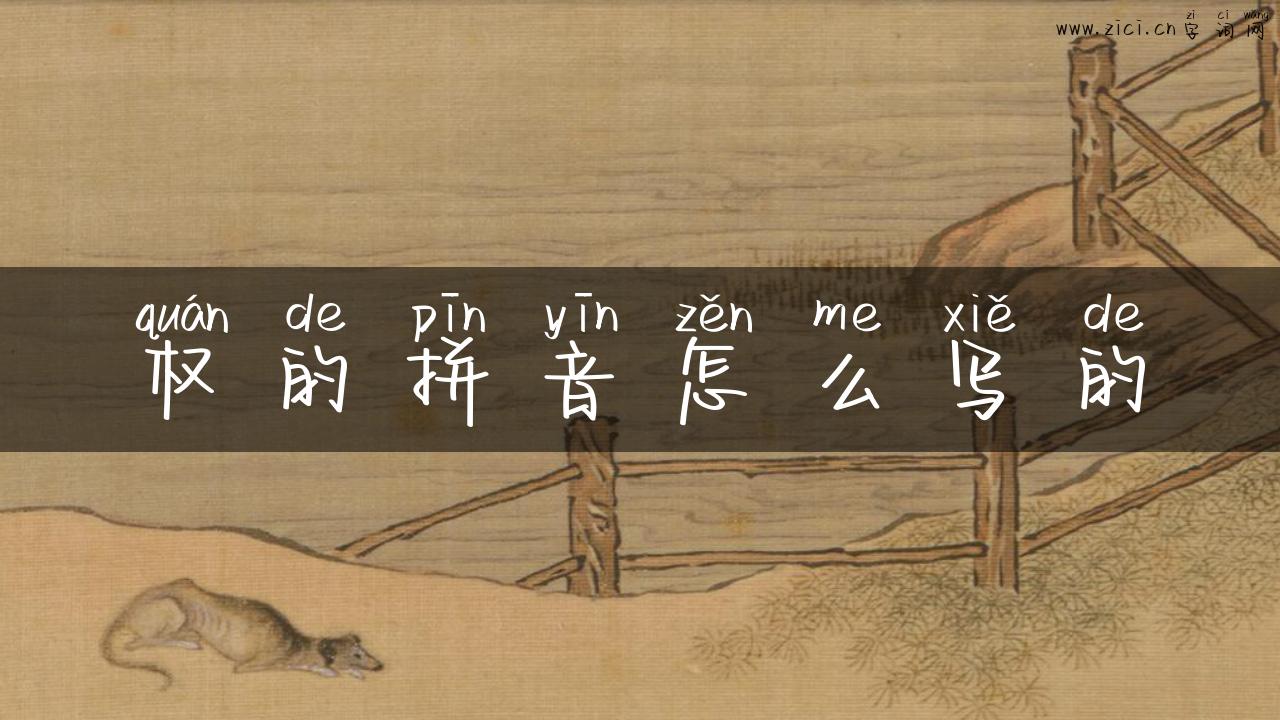 zì cí wǎng
www.zici.cn 字词网
quán de pīn yīn zěn me xiě de
权的拼音怎么写的